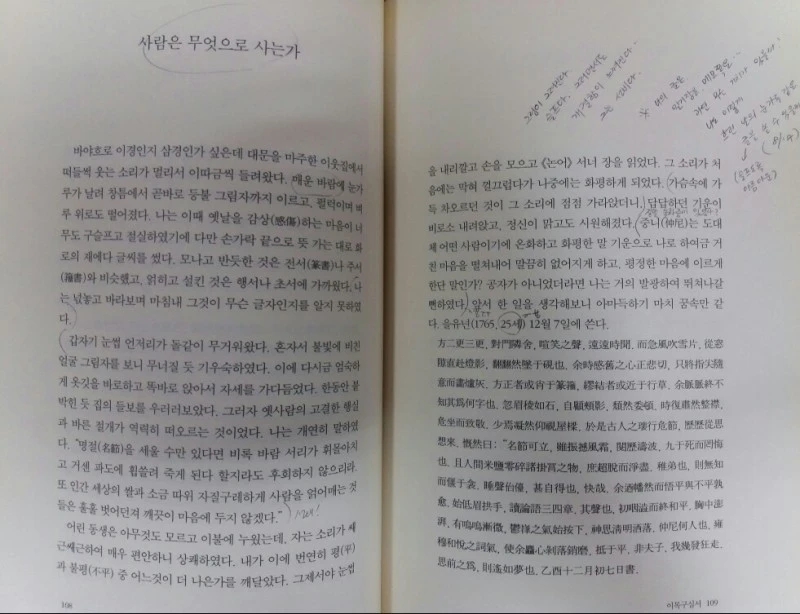 사람은 무엇으로 사는가
바야흐로 이경인지 삼경인가 싶은데 대문을 마주한 이웃집에서
떠들썩 웃는 소리가 멀리서 이따금씩 들려왔다. 매운 바람에 눈가
루가 날려 창틈에서 곧바로 등불 그림자까지 이르고, 펄럭이며 벼
루 위로도 떨어졌다. 나는 이때 옛날을 감상(感傷)하는 마음이 너
무도 구슬프고 절실하였기에 다만 손가락 끝으로 뜻 가는 대로 화
로의 재에다 글씨를 썼다. 모나고 반듯한 것은 전서(篆書)나 주서
(籒書)와 비슷했고, 얽히고 설킨 것은 행서나 초서에 가까웠다. 나
는 넋놓고 바라보며 마침내 그것이 무슨 글자인지를 알지 못하였
다.
갑자기 눈썹 언저리가 돌같이 무거워왔다. 혼자서 불빛에 비친
얼굴 그림자를 보니 무너질 듯 기우숙하였다. 이에 다시금 엄숙하
게 옷깃을 바로하고 똑바로 앉아서 자세를 가다듬었다. 한동안 붙
박힌 듯 집의 들보를 우러러보았다. 그러자 옛사람의 고결한 행실
과 바른 절개가 역력히 떠오르는 것이었다. 나는 개연히 말하였
다. “명절(名節)을 세울 수만 있다면 비록 바람 서리가 휘몰아치
고 거센 파도에 휩쓸려 죽게 된다 할지라도 후회하지 않으리라.
또 인간 세상의 쌀과 소금 따위 자질구레하게 사람을 얽어매는 것
들은 훌훌 벗어던져 깨끗이 마음에 두지 않겠다.”
어린 동생은 아무것도 모르고 이불에 누웠는데, 자는 소리가 새
근쌔근하여 매우 편안하니 상쾌하였다. 내가 이에 번연히 평(平)
과 불평(不平) 중 어느것이 더 나은가를 깨달았다. 그제서야 눈썹
108
그림이 그려진다
슬프다.
을 내리깔고 손을 모으고 《논어》 서너 장을 읽었다. 그 소리가 처
음에는 막혀 껄끄럽다가 나중에는 화평하게 되었다. 가슴속에 가
득 차오르던 것이 그 소리에 점점 가라앉더니, 답답하던 기운이
비로소 내려앉고, 정신이 맑고도 시원해졌다. 중니(仲尼)는 도대
체 어떤 사람이기에 온화하고 화평한 말 기운으로 나로 하여금 거
친 마음을 떨쳐내어 말끔히 없어지게 하고, 평정한 마음에 이르게
한단 말인가? 공자가 아니었더라면 나는 거의 발광하여 뛰쳐나갈
뻔하였다. 앞서 한 일을 생각해보니 아마득하기 마치 꿈속만 같
다. 을유년(1765, 25세) 12월 7일에 쓴다.
方二更三更, 對門隣舍, 喧笑之聲, 遠遠時聞. 而急風吹雪片, 從窓
隙直赴燈影, 翩翩然墜于硯也. 余時感舊之心正悲切, 只將指尖隨
意而畵爐灰. 方正者或肖于篆籒, 繆結者或近于行草. 余脈脈終不
知其爲何字也. 忽眉稜如石, 自顧頰影, 頹然委頓, 時復肅然整襟,
危坐而致敬. 少焉凝然仰視屋樑. 於是古人之瑰行危節, 歷歷從思
想來. 慨然曰: “名節可立, 雖振撼風霜, 閱歷濤波, 九于死而罔悔
也. 且人間米鹽零碎諸掛罥之物, 庶超脫而淨盡. 稚弟也, 則無知
而偃于衾. 睡聲伈僮, 甚自得也, 快哉. 余迺幡然而悟平與不平孰
愈. 始低眉拱手, 讀論語三四章. 其聲也, 初咽澁而終和平. 胸中澎
湃, 有嗚嗚漸微, 鬱嵂之氣始按下, 神思淸明洒落. 仲尼何人也. 雍
穆和悅之詞氣, 使余麤心剝落銷磨, 抵于平. 非夫子, 我幾發狂走.
思前之爲, 則遙如夢也. 乙酉十二月初七日書.
이목구심서 109